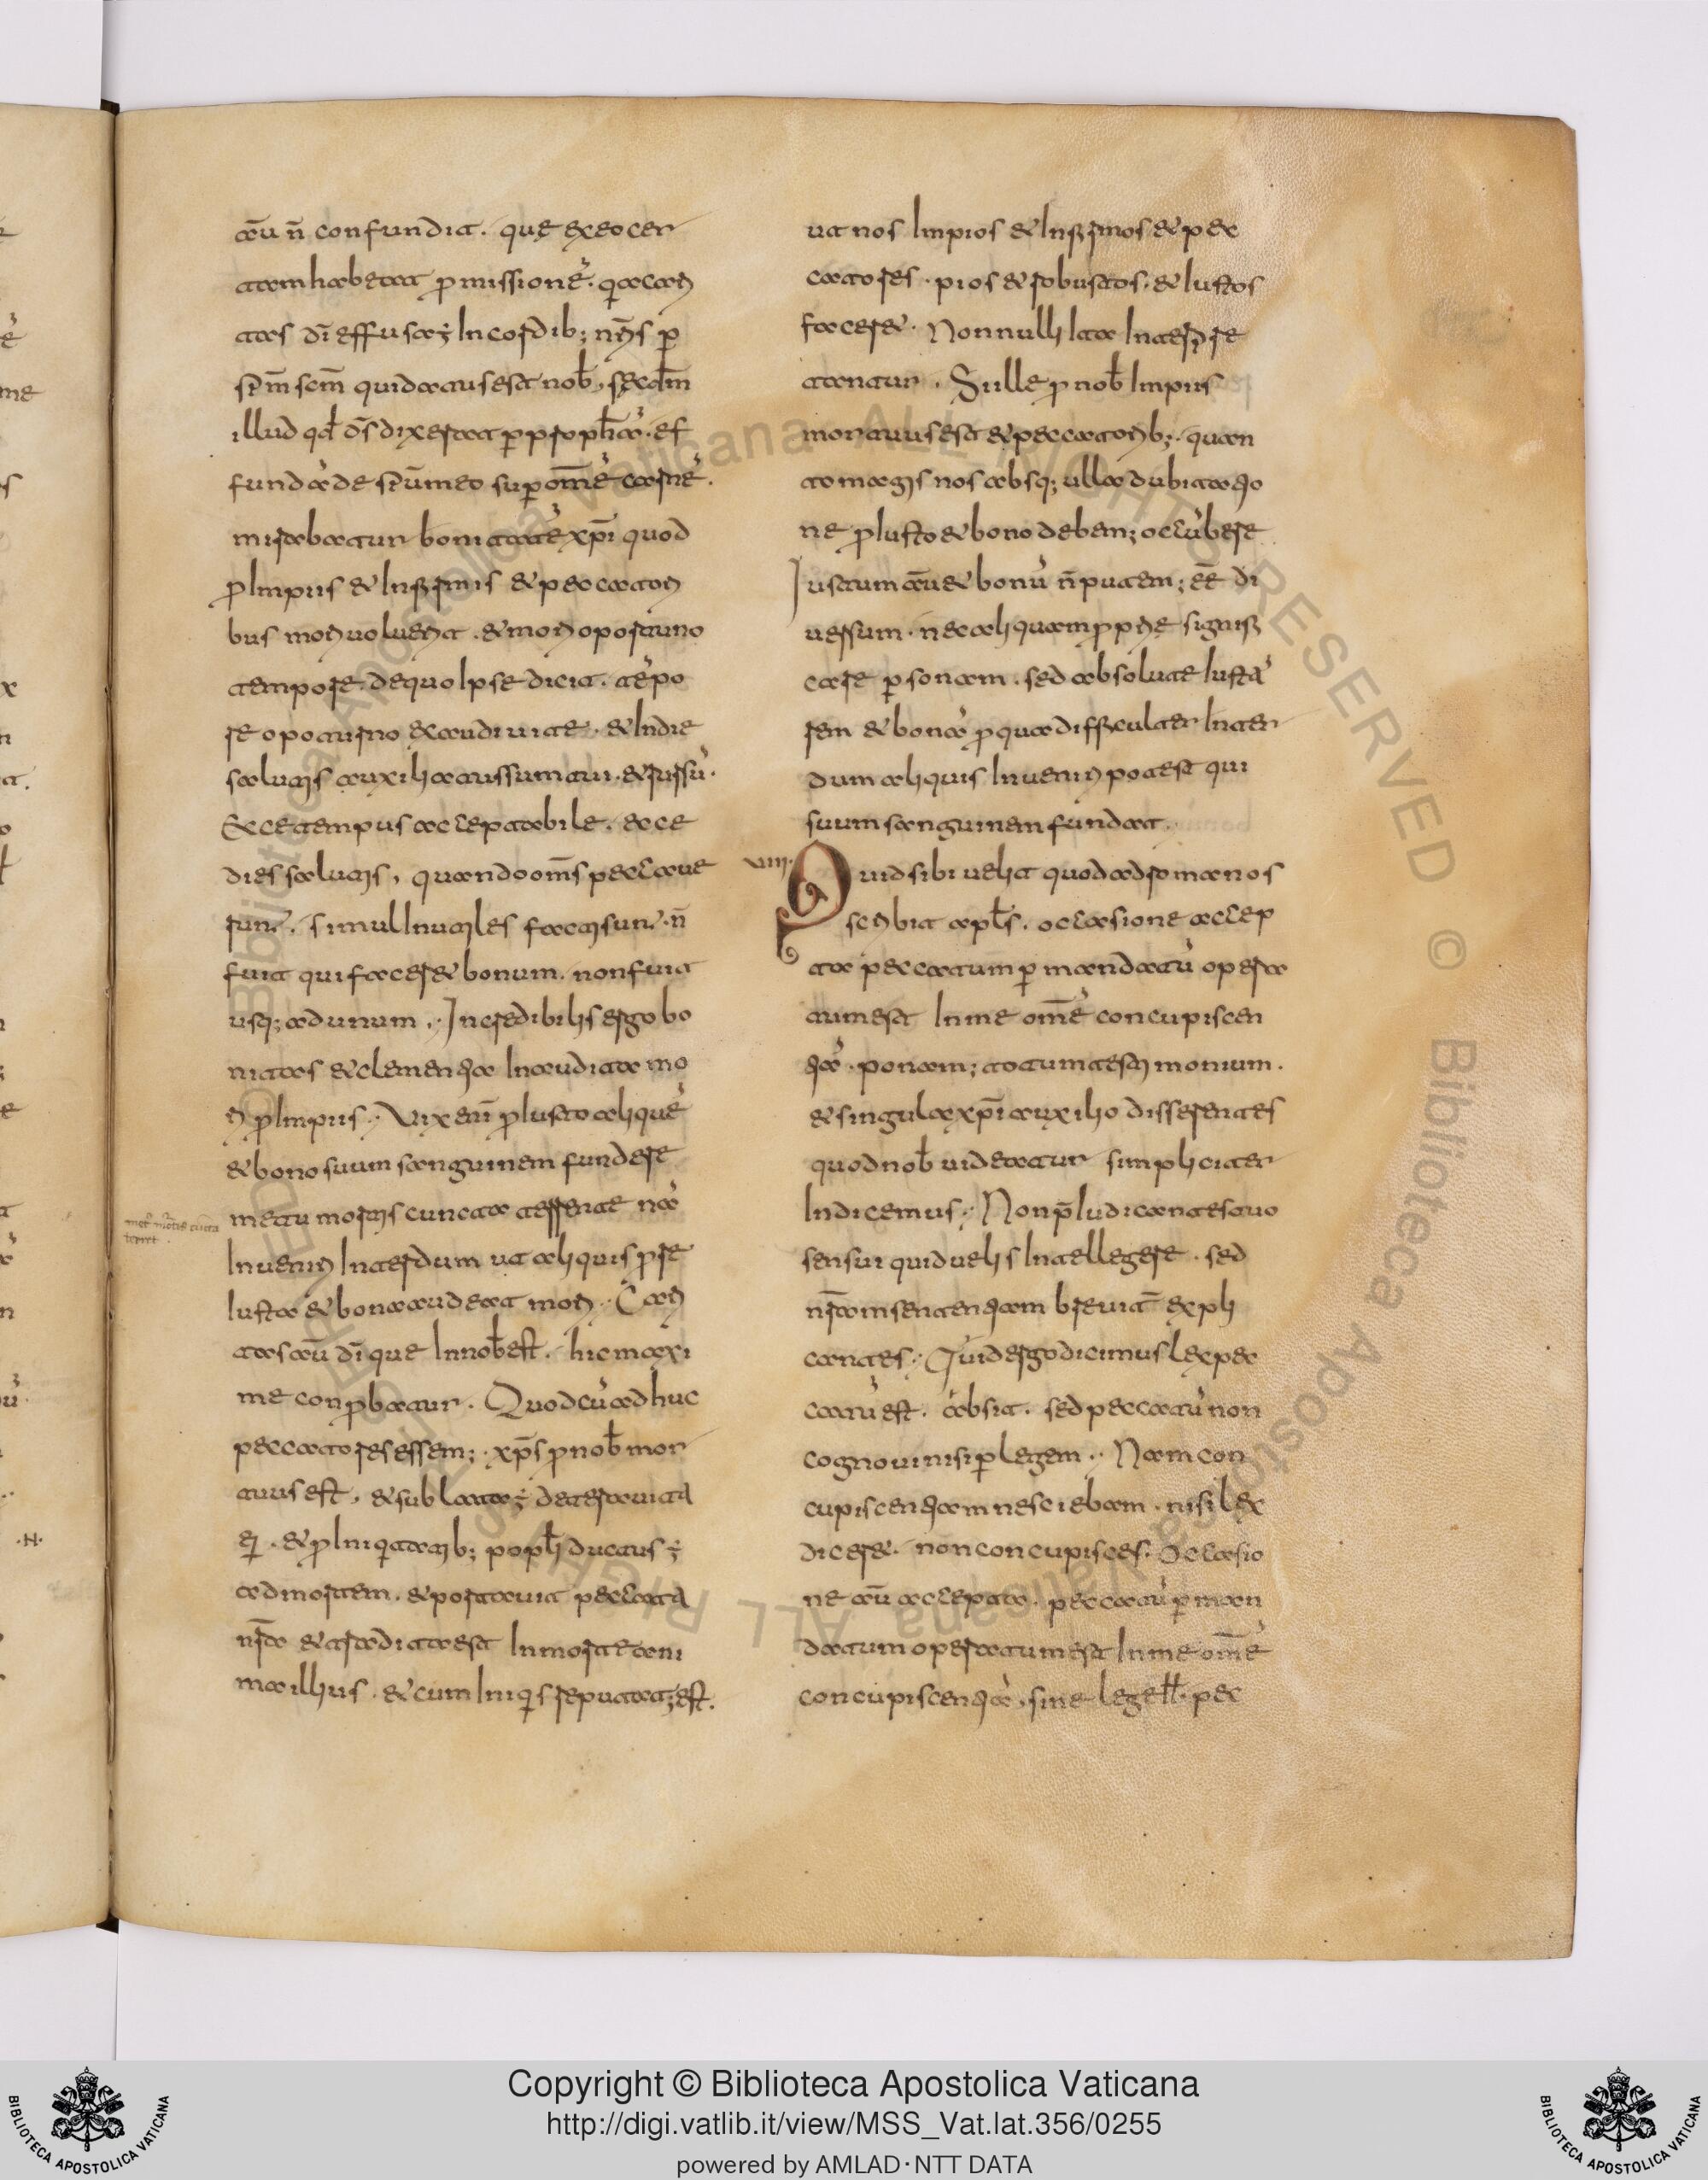 aũ ñ confundit. quę ex eo cer
tam habetat ꝓmissionẽ. q̃a cari
tas dĩ effusa ÷ In cordib; nr̃is ꝑ
sp̃m sc̃m qui datus est nob̃, secdm̃
illud qd̃ d̃s dixerat ꝑ ꝓph̃ã. ef
fundã de sp̃u meo suꝑ om̃ẽ carnẽ.
mirabatur bonitatẽ xp̃i quod
ꝓ Impiis & Infirmis & peccatori
bus mori uoluerit. & mori oportuno
tempore. de quo Ipse dicit. tẽpo
re opotuno exaudiui te. & In die
salutis auxiliatus sum tui. & rursũ.
Ecce tempus acceptabile. ecce
dies salutis, quando om̃s peccaue
runt. simul Inutiles facti sunt. ñ
fuit qui faceret bonum. non fuit
usq; ad unum. Incredibilis ergo bo
nitas & clementia Inaudita mo
ri ꝓ Impiis. Vix enĩ ꝓ Iusto aliquẽ
& bono suum sanguinem fundere
metu mortis cuncta terrente nã
Inueniri Interdum ut aliquis ꝓ re
Iusta & bona audeat mori. Cari
tas aũ dĩ que In nob̃ est. hic maxi
me conꝓbatur. Quod cũ adhuc
peccatores essem;. xp̃s ꝓ nob̃ mor
tuus est, & sublata ÷ de terra uita
ei. & ꝓ Iniq̃tatib; popli ductus ÷
ad mortem. & portauit peccata
nr̃a & tradita est In morte ani
ma illius. & cum Iniq̃s reputat; est.
met' mortis cucta
terret.
ut nos Impios & Infirmos & pec
catores. pios & robustos. & Iustos
faceret. Nonnulli Ita Interp̃re
tantur. Si ille ꝓ nob̃ Impiis
mortuus est & peccatorib;. quan
to magis nos absq; ulla dubitatio
ne ꝓ Iusto & bono debem; occũbere
Iustum aũ & bonũ ñ putem; eẽ di
uersum. nec aliquam ꝓpriẽ signifi
care ꝑsonam. sed absolute Iustã
rem & bonã ꝓ qua difficulter Inter
dum aliquis Inueniri potest qui
suum sanguinem fundat.
VIII. Quid sibi uelit quod ad romanos
scribit apl̃s. occasione accep
ta peccatum ꝑ mandatũ opera
tum est In me om̃ẽ concupiscen
tiã. ponam; totum testimonium.
& singula xp̃i auxilio disserentes
quod nob̃ uideatur simpliciter
Indicemus. Non p̃Iudicantes tuo
sensui quid uelis Intellegere. sed
nr̃am sententiam breuit̃ expli
cantes. Quid ergo dicimus Lex pec
catũ est. absit. sed peccatũ non
cognoui nisi ꝑ legem. Nam con
cupiscentiam nesciebam. nisi lex
diceret. non concupisces. Occasio
ne aũ accepta. peccatũ ꝑ man
datum operatum est In me om̃ẽ
concupiscentiã, sine lege pec
Copyright © Biblioteca Apostolica Vaticana
http://digi.vatlib.it/view/MSS_Vat.lat.356/0255
powered by AMLAD·NTT DATA